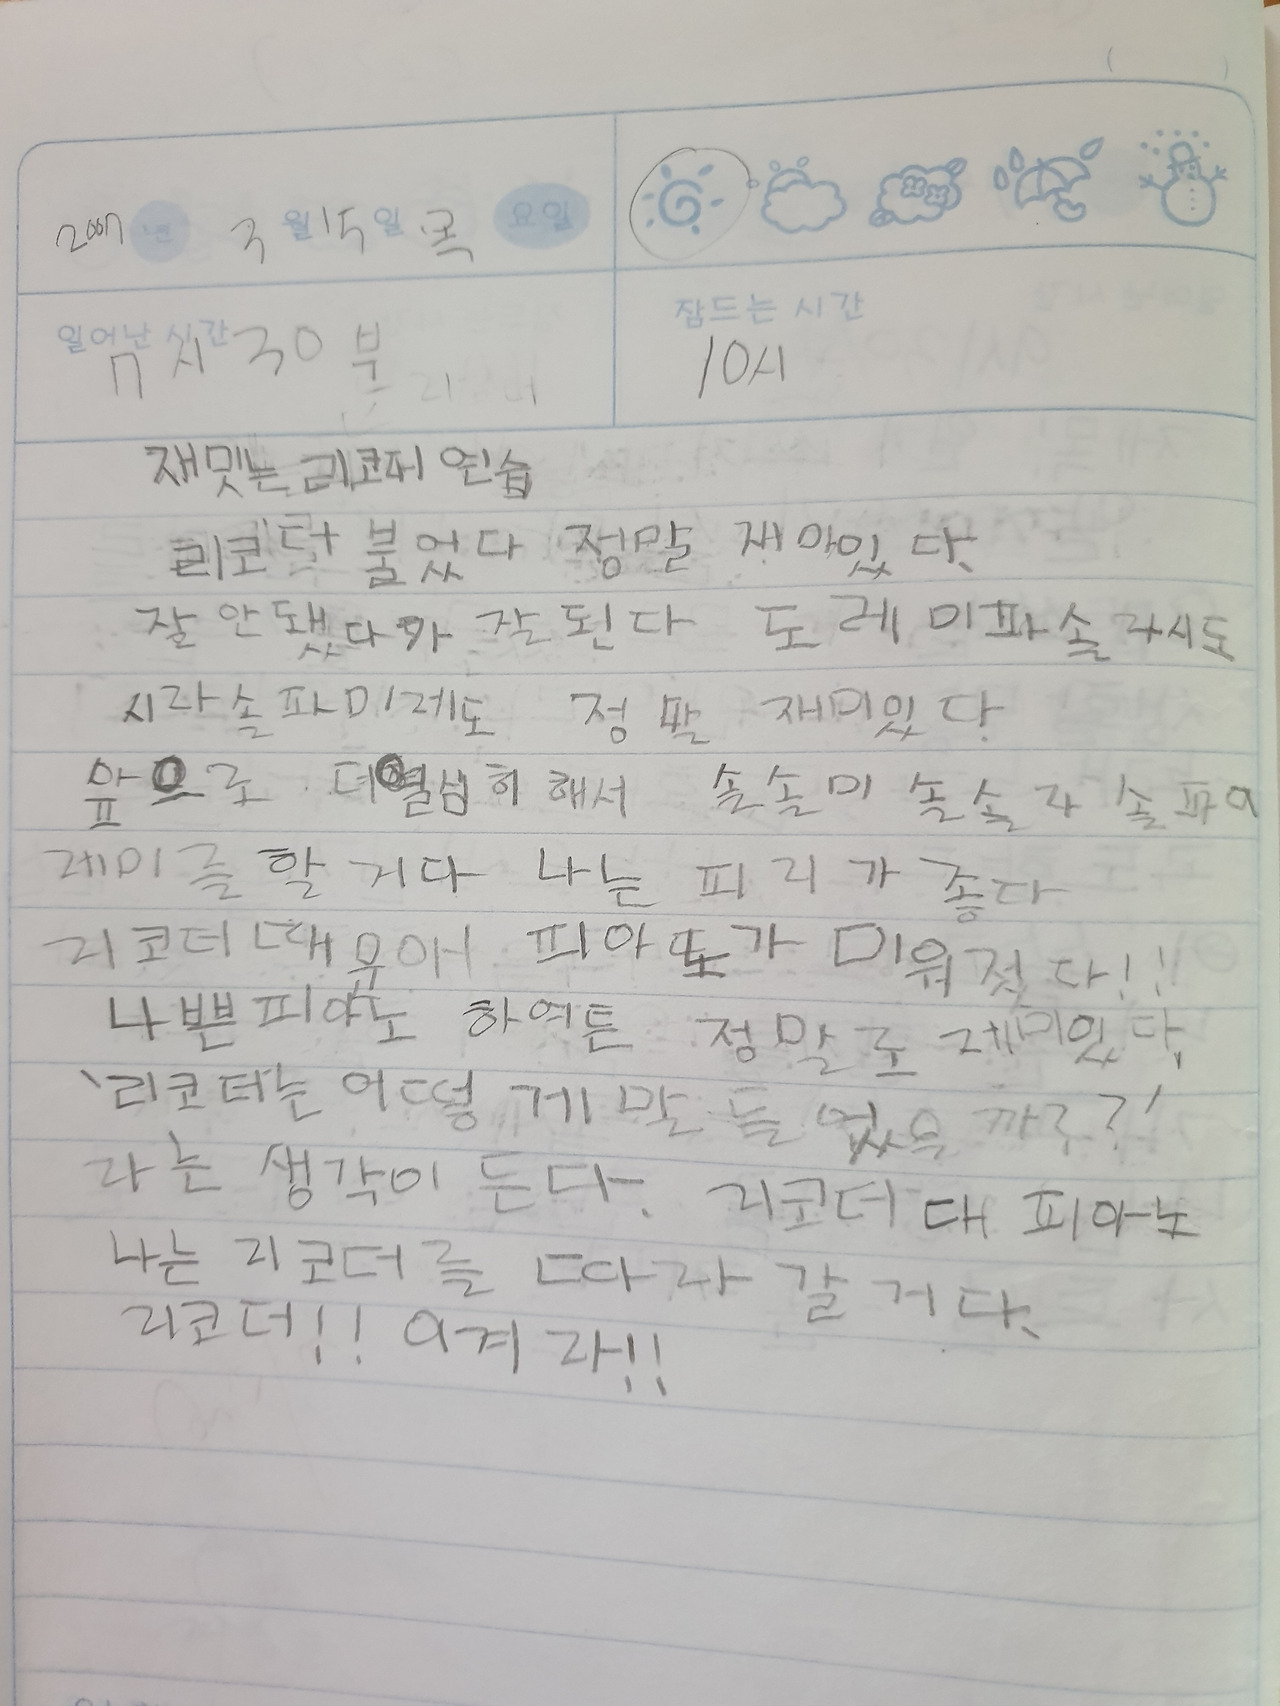 2007년 3월 15일 목요일
일어난 시간 7시 30분
잠드는 시간
10시
재밋는 리코더 연습
리코더 불었다 정말 재미있다.
잘 안됐다가 잘된다 도레미파솔라시도
시라솔파미레도 정말 재미있다
앞으로 더 열심히 해서 솔솔미 솔솔라 솔파미
레미를 할 거다 나는 피리가 좋다
리코더 때무애 피아노가 미워젔다!!
나쁜피아노 하여튼 정말로 재미있다.
'리코더는 어떻게 만들었을까???'
라는 생각이 든다. 리코더 대 피아노
나는 리코더를 따라 갈 거다.
리코더!! 이겨라!!